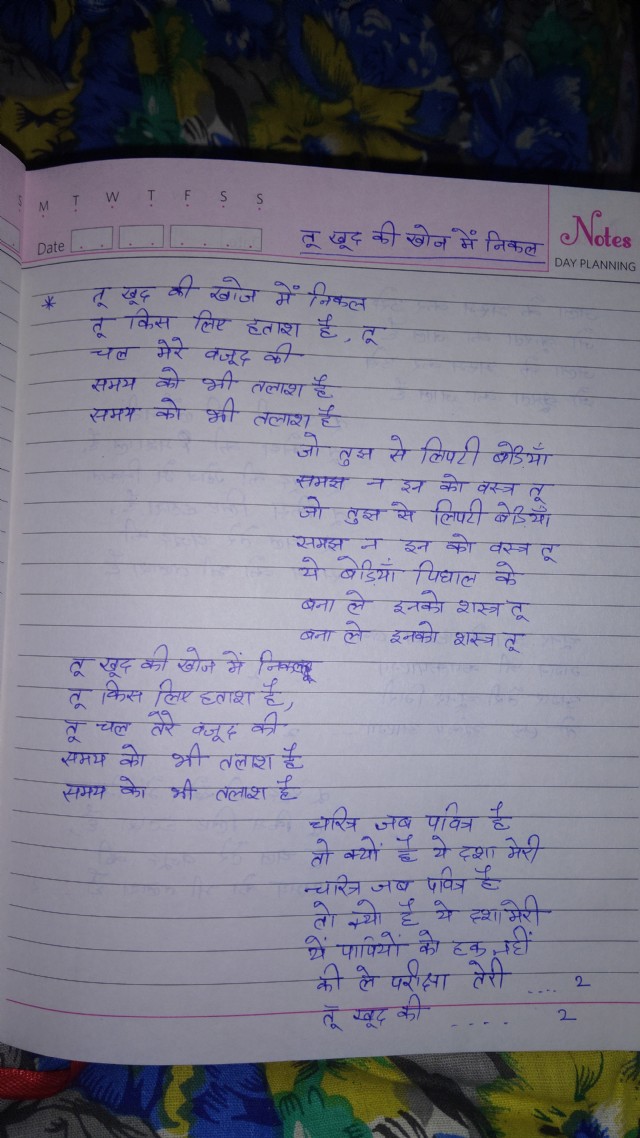 S M T W T F S S
Notes
Date
तू खूद की खोज में निकल
DAY PLANNING
* तू खूद की खोज में निकल
तू किस लिए हताश है, तू
चल मेरे वजूद की
समय को भी तलाश है
समय को भी तलाश है
जो तुझ से लिपटी बेड़ियाँ
समझ न इन को वस्त्र तू
जो तुझ से लिपटी बेड़ियाँ
समझ न इन को वस्त्र तू
ये बेड़ियाँ पिघाल के
बना ले इनको शस्त्र तू
बना ले इनको शस्त्र तू
तू खूद की खोज में निकल
तू किस लिए हताश है,
तू चल तेरे वजूद की
समय को भी तलाश है
समय को भी तलाश है
चरित्र जब पवित्र है
तो क्यों है ये दशा मेरी
चरित्र जब पवित्र है
तो क्यो है ये दशा मेरी
ये पापियों को हक नहीं
की ले परीक्षा तेरी .... 2
तू खूद की .... 2